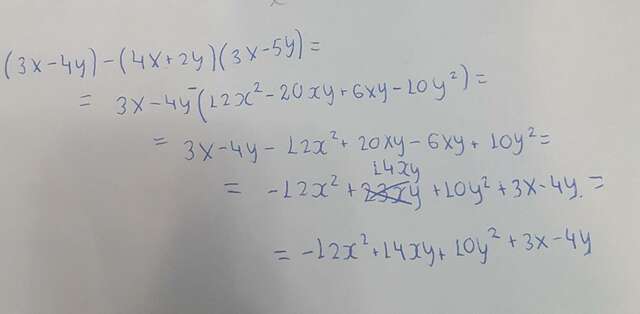 (3x-4y)-(4x+2y)(3x-5y)=
= 3x-4y-(12x²-20xy+6xy-10y²)=
= 3x-4y-12x²+20xy-6xy+10y²=
= -12x²+14xy+10y²+3x-4y.=
= -12x²+14xy+10y²+3x-4y